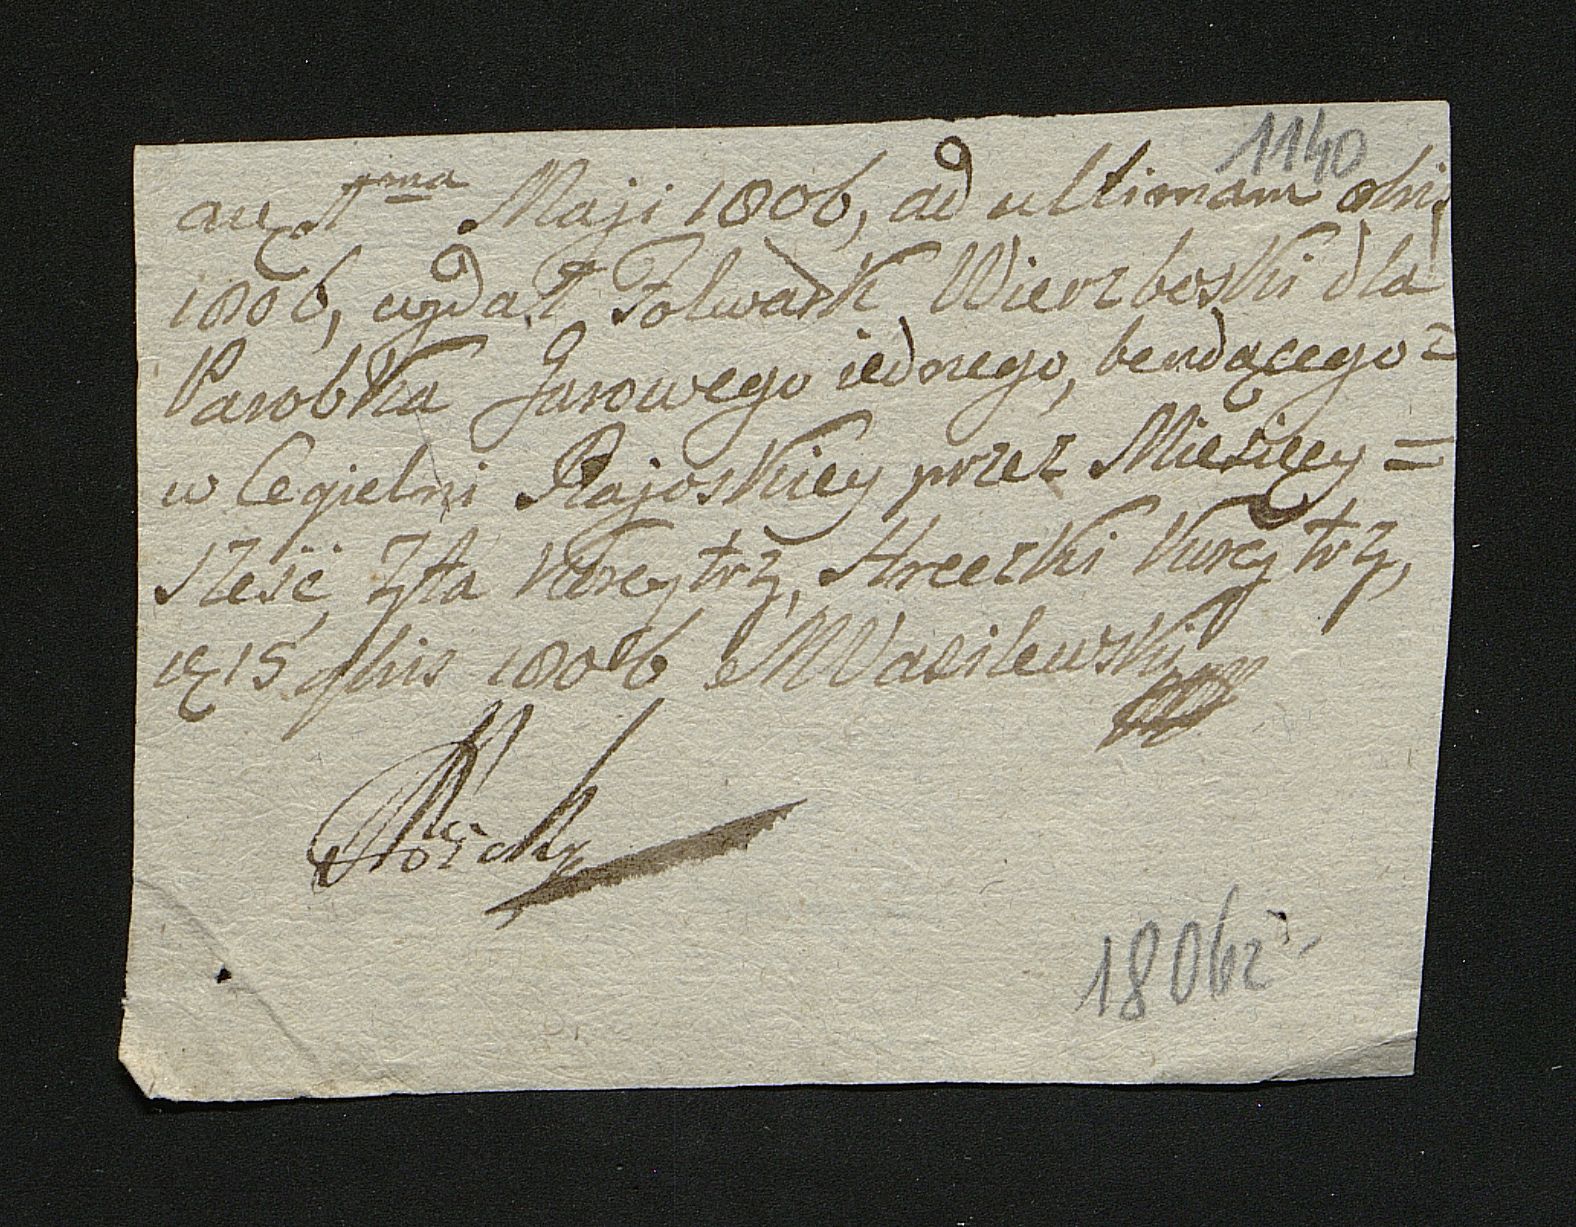 1140
aq 1ma Maji 1806, ad ultimam 8bris
1806, wydał Folwark Wierzboski dla
Parobka Jarowego iednego, bendącego =
w Cegielni Rajoskiey przez Miesięcy =
sześć Zyta Korcy trzy, Hreczki Korcy trzy,
15 9bris 1806 MWasilewski
1806 r